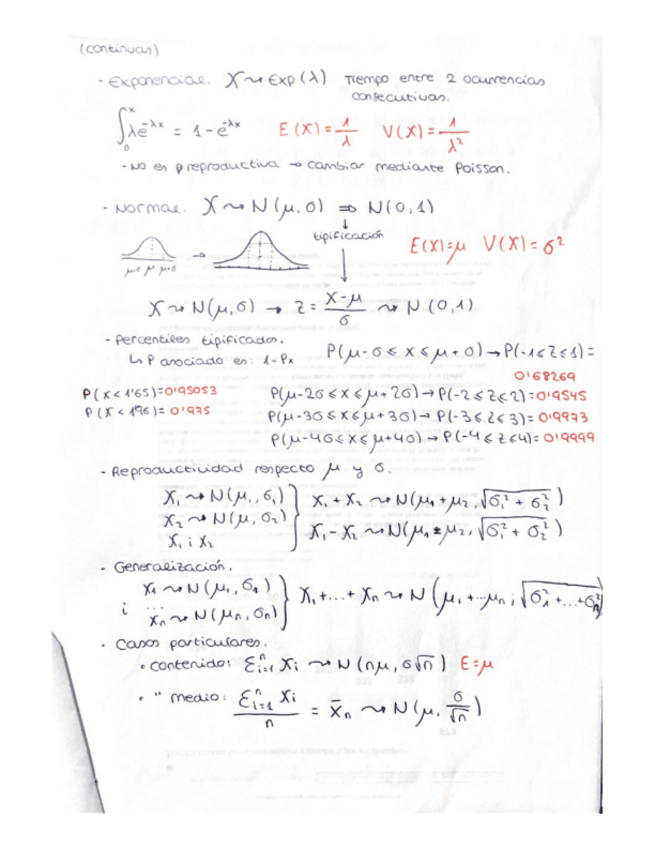 (continuas)
- Exponencial. X ~ Exp (λ) Tiempo entre 2 ocurrencias
consecutivas.
∫₀ˣ λe^-λx = 1 - e^-λx E(X) = 1/λ V(X) = 1/λ²
- No es reproductiva → cambiar mediante Poisson.
- Normal. X ~ N(μ, σ) ⇒ N(0,1)
↓
tipificación
E(X)=μ V(X)=σ²
μ-σ μ μ+σ
X ~ N(μ,σ) → Z = (X-μ)/σ ~ N (0,1)
- Percentiles tipificados.
↳ P asociado es: 1-Px
P(μ-σ ≤ X ≤ μ+σ) → P(-1≤Z≤1) =
0'68269
P(X<1'65)=0'95053
P(X<1'96)=0'975
P(μ-2σ≤X≤μ+2σ) → P(-2≤Z≤2)=0'9545
P(μ-3σ≤X≤μ+3σ) → P(-3≤Z≤3)=0'9973
P(μ-4σ≤X≤μ+4σ) → P(-4≤Z≤4)=0'9999
- Reproductividad respecto μ y σ.
X₁ ~ N(μ₁,σ₁) } X₁+X₂ ~ N(μ₁+μ₂, √σ₁²+σ₂²)
X₂ ~ N(μ, σ₂)
X₁ i X₂ X₁-X₂ ~ N(μ₁±μ₂, √σ₁²+σ₂²)
- Generalización.
X₁ ~ N(μ₁, σ₁) } X₁+...+Xn ~ N(μ₁+...μn; √σ₁²+...+σn²)
i ...
Xn ~ N(μn, σn)
- Casos particulares.
• contenido: Σⁿᵢ₌₁ Xi ~ N(nμ, σ√n) E=μ
• " medio: (Σⁿᵢ₌₁ Xi)/n = X̄n ~ N(μ, σ/√n)